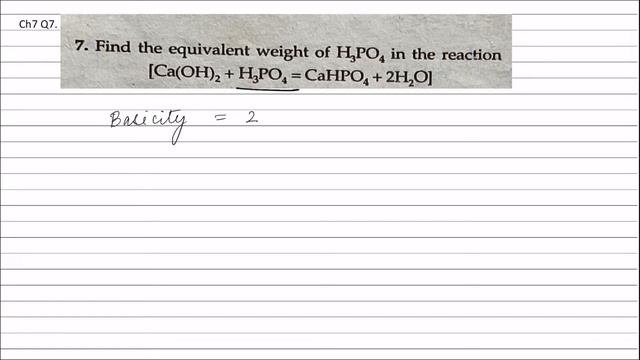 Ch7 Q7.
7. Find the equivalent weight of H₃PO₄ in the reaction
[Ca(OH)₂ + H₃PO₄ = CaHPO₄ + 2H₂O]
Basicity = 2